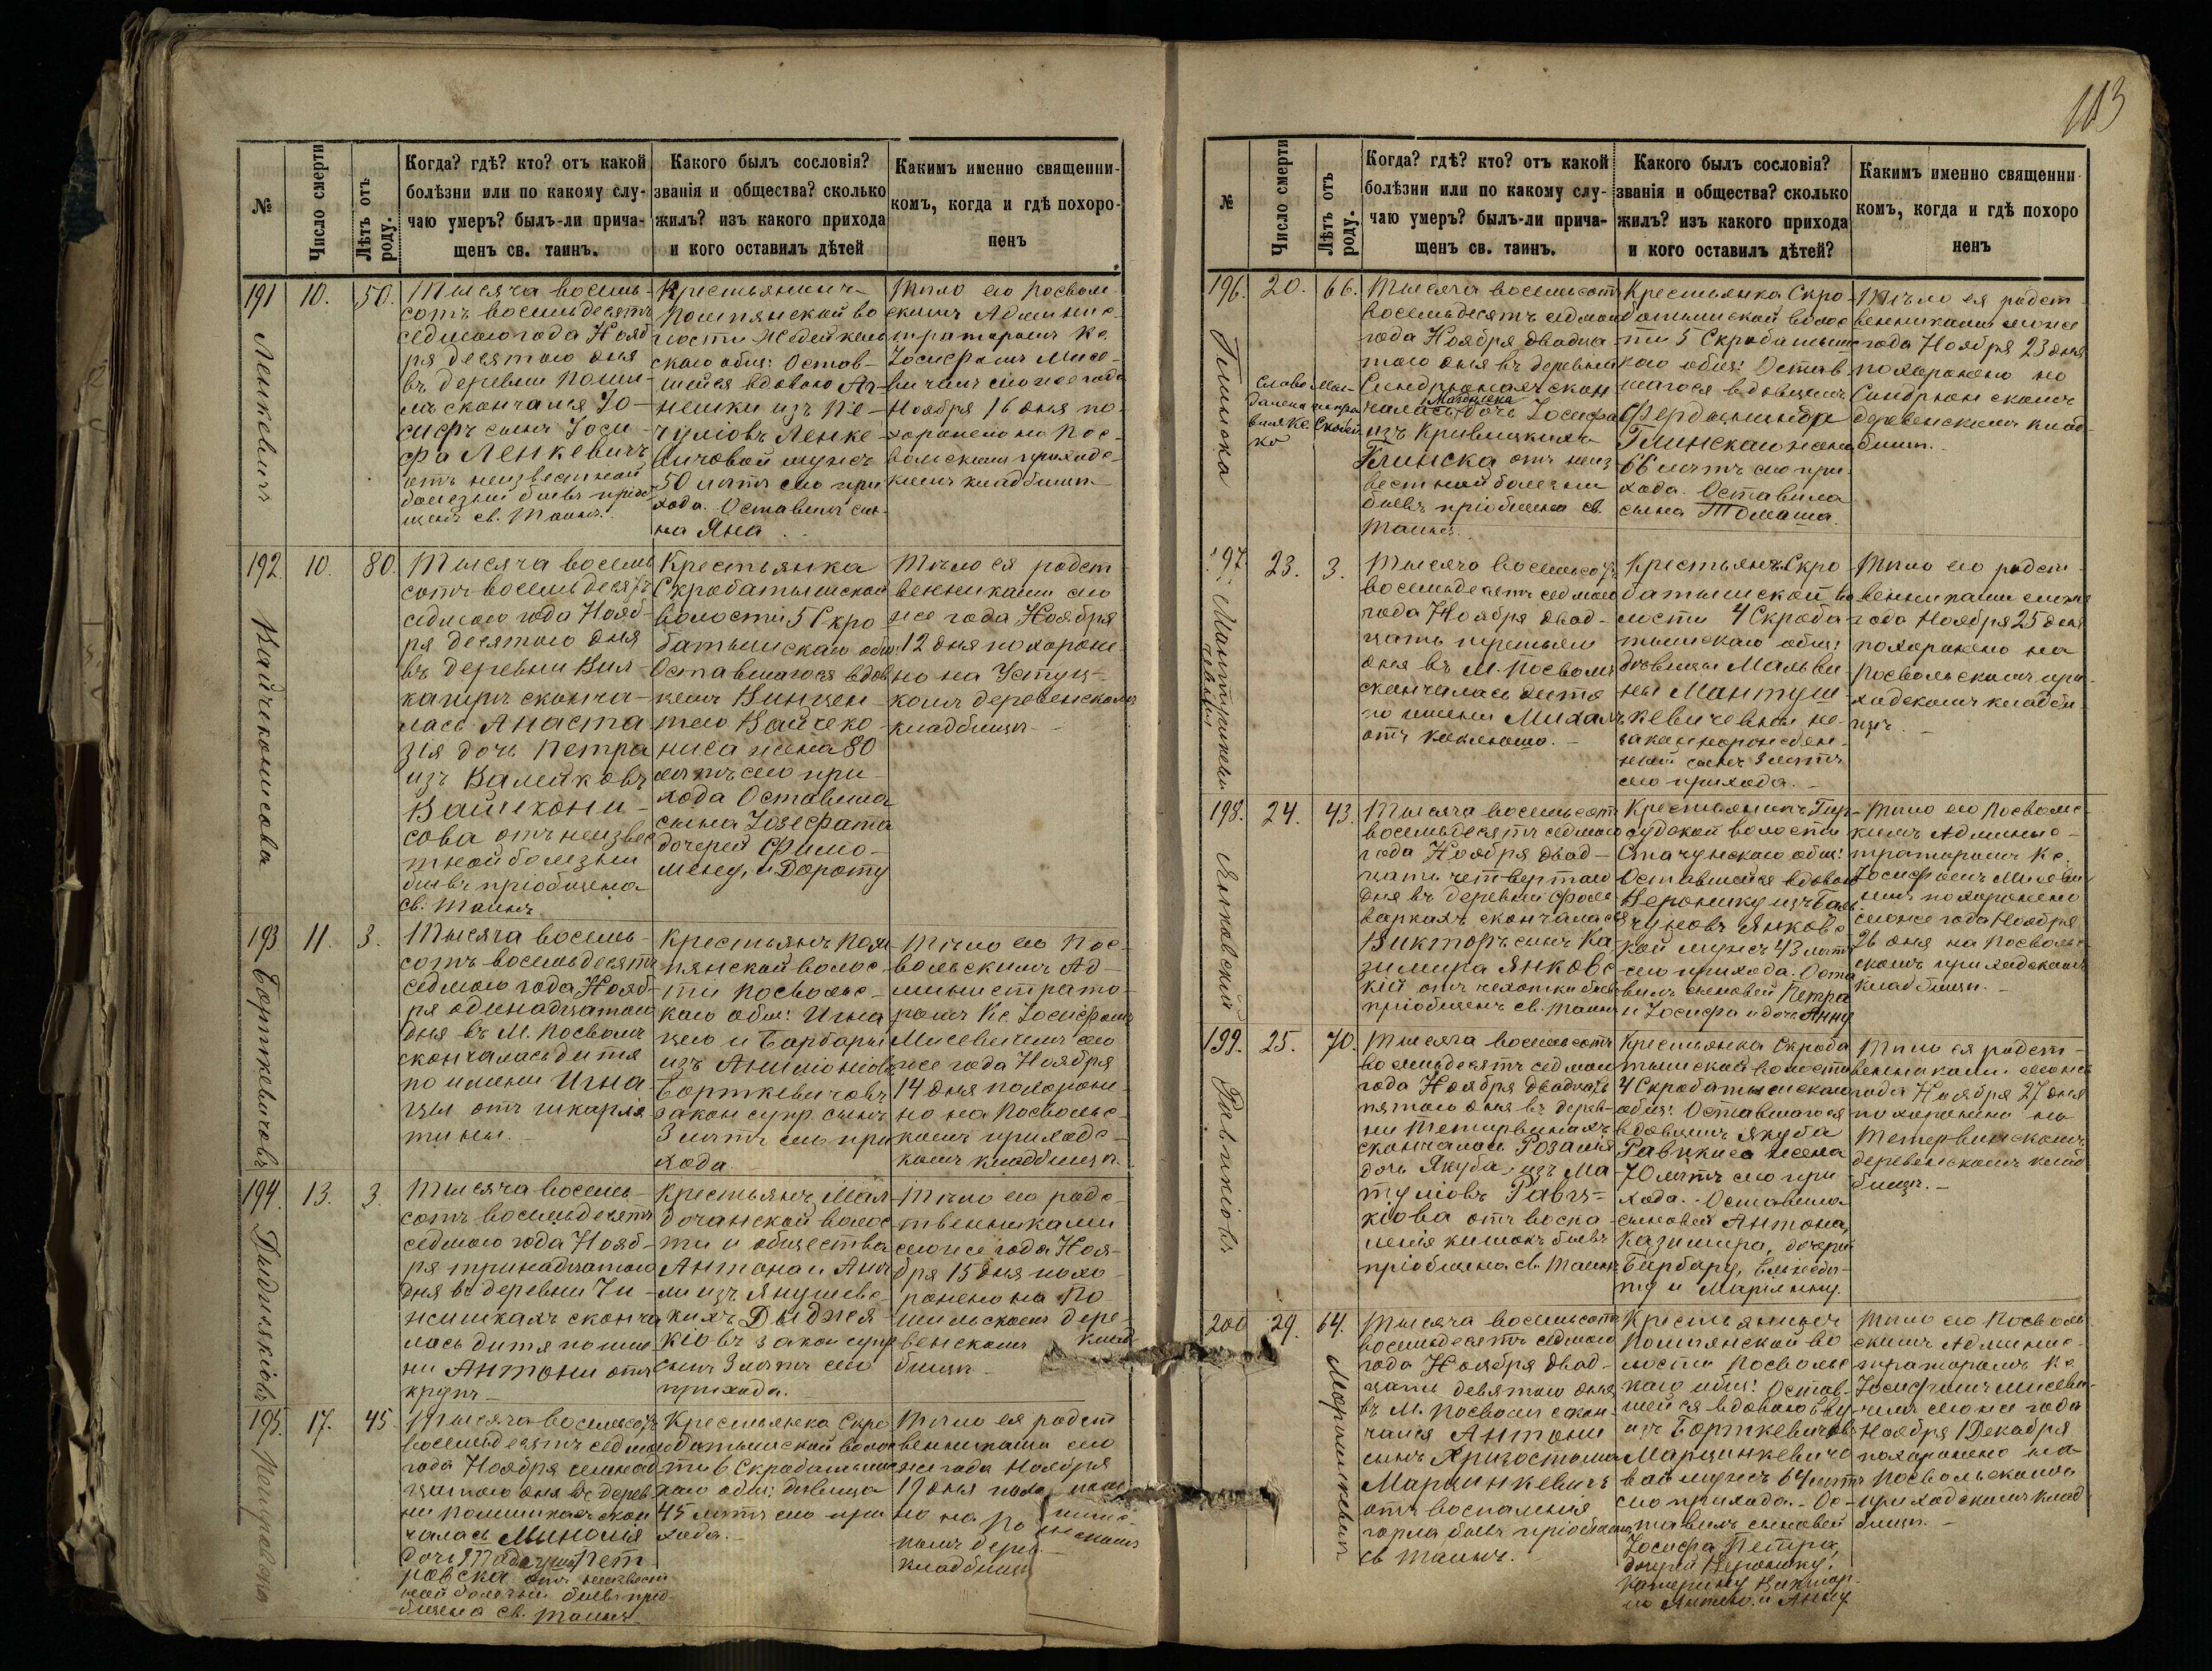 113
№
Число смерти
Лѣтъ отъ роду.
Когда? гдѣ? кто? отъ какой
болѣзни или по какому слу-
чаю умеръ? былъ-ли прича-
щенъ св. таинъ.
Какого былъ сословія?
званія и общества? сколько
жилъ? изъ какого прихода
и кого оставилъ дѣтей
Каким‌ъ именно священни-
комъ, когда и гдѣ похоро-
ненъ
191
10.
50.
Ленкевичъ
Тысяча восемь-
сотъ восемьдесятъ
седмого года Нояб-
ря десятого дня
въ деревни
скончался Іо-
сифъ сынъ Іоси-
фа Ленкевичъ
отъ неизвестной
болезни бывъ пріоб-
щенъ св. Таинъ.
Крестьянинъ
Помпянской во
лости
ского общ: Остав-
шейся вдовою Аг-
нешки изъ
Ленке-
вичовой мужъ
50 летъ сего при
хода. Оставилъ сы-
на Яна
Тѣло его Посволь-
скимъ Админис-
траторомъ Кс.
Іосифомъ Мисе-
вичемъ сего же года
Ноября 16 дня по-
хоронено на Пос-
вольскимъ приходс-
комъ кладбищѣ
192
10.
80.
Вайчеконисова
Тысяча восемь
сотъ восемьдесятъ
седмого года Нояб-
ря десятого дня
въ деревни Вил-
сконча-
лась Анаста
зія дочь Петра
изъ
Вайчекони-
сова отъ неизвес
тной болезни
бывъ пріобщена
св. Таинъ
Крестьянка
Скробатышской
волости 5 Скро
батышскаго общ:
Оставшагося вдов
цемъ Винцен-
тего Вайчеко-
ниса жена 80
летъ сего при-
хода Оставила
сына Іозефата
дочерей Фило-
мену, и Дороту
Тѣло ея родст
венниками сего
же года Ноября
12 дня похороне-
но на
комъ деревенскомъ
кладбищѣ
193
11.
3.
Борткевичовъ
Тысяча восемь-
сотъ восемьдесятъ
седмого года Нояб-
ря одинадцатого
дня въ М. Посволѣ
скончалась дитя
по имени Игна-
цы отъ шкарля
тины.
Крестьянъ Пом
пянской волос-
ти Посвольс-
каго общ: Игна
цего и Барбары
изъ
Борткевичовъ
закон супр. сынъ
3 летъ сего при
хода.
Тѣло его Пос-
вольскимъ Ад-
министрато-
ромъ Кс. Іосифомъ
Мисевичемъ сего
же года Ноября
14 дня похороне-
но на Посвольс-
комъ приходс-
комъ кладбищѣ.
194.
13.
3.
Тысяча восемь-
сотъ восемьдесятъ
седмого года Нояб-
ря тринадцатого
дня въ деревни
сконча
лась дитя по име
ни Антони отъ
крупъ
Крестьянъ
волос
ти и общества
Антона и
изъ Янушевс-
кихъ
закон супр
сынъ 3 летъ сего
прихода.
Тѣло его родс-
твенниками
сего же года Ноя-
бря 15 дня похо-
ронено на По-
дере-
венскомъ клад
бищѣ
195.
17.
45.
Петровска
Тысяча восемьсотъ
восемьдесятъ седмого
года Ноября семнад
цатого дня въ дерев
ни скон
чалась
дочь Пет-
ровска отъ неизвест
ной болезни бывъ пріо-
бщена св. Таинъ
Крестьянка Скро
батышской волос
ти 6 Скробатышс
каго общ: девица
45 летъ сего при
хода.
Тѣло ея родст
венниками сего
же года Ноября
19 дня
но на По
комъ дерев
кладбищѣ
№
Число смерти
Лѣтъ отъ роду.
Когда? гдѣ? кто? отъ какой
болѣзни или по какому слу-
чаю умеръ? былъ-ли прича-
щенъ св. таинъ.
Какого былъ сословія?
званія и общества? сколько
жилъ? изъ какого прихода
и кого оставилъ дѣтей?
Какимъ именно священни-
комъ, когда и гдѣ похоро
ненъ
196.
20.
66.
Глинска
Тысяча восемьсотъ
восемьдесятъ седмого
года Ноября двадца
того дня въ деревни
скон
чалась Магдалена дочь Іосифа
изъ
Глинска отъ неиз
вестной болезни
бывъ пріобщена св.
Таинъ.
Крестьянка Скро
батышской волос
ти 5 Скробатышс
каго общ: Остав
шагося вдовцемъ
Фердинанда
Глинскаго жена
66 летъ сего при
хода. Оставила
сына Томаша.
Тѣло ея родст
венниками сего же
года Ноября 23 дня
похоронено на
деревенскомъ клад-
бищѣ.
197.
23.
3.
Тысяча восемьсотъ
восемьдесятъ седмого
года Ноября двад-
цать третьего
дня въ М. Посволѣ
скончалась дитя
по имени Михалъ
отъ коклюша.
Крестьянъ Скро
батышской во
лости 4 Скроба-
тышскаго общ:
девицы Мальви
ны Мантуш-
кевичевны не-
законнорожден-
ный сынъ 3 летъ
сего прихода.
Тѣло его родст-
венниками сего же
года Ноября 25 дня
похоронено на
Посвольскомъ при
ходскомъ кладби-
щѣ.
198.
24.
43.
Янковскій
Тысяча восемьсотъ
восемьдесятъ седмого
года Ноября двад-
цать четвертого
дня въ деревни Фоль
варкахъ скончался
Викторъ сынъ Ка
зимира Янковс-
кій отъ чехотки бывъ
пріобщенъ св. Таинъ
Крестьянинъ
волости
общ:
Оставшейся вдовою
Веронику изъ
Янковс-
кой мужъ 43 летъ
сего прихода. Оста
вилъ сыновей Петра
и Іосифа и дочь Анну
Тѣло его Посвольс-
кимъ Админис-
траторомъ Кс.
Іосифомъ Мисеви
чемъ похоронено
сего же года Ноября
26 дня на Посволь-
скомъ приходскомъ
кладбищѣ.
199.
25.
70.
Тысяча восемьсотъ
восемьдесятъ седмого
года Ноября двадцать
пятого дня въ дерев-
ни
скончалась Розалія
дочь Якуба, изъ Ма
туліовъ
отъ воспа-
ленія кишокъ бывъ
пріобщена св. Таинъ
Крестьянка Скроба
тышской волости
4 Скробатышскаго
общ: Оставшагося
вдовцемъ Якуба
жена
70 летъ сего при
хода. Оставила
сыновей Антона,
Казимира, дочери
Барбару, Елизабе-
ту и Маріянну.
Тѣло ея родст-
венниками сего же
года Ноября 27 дня
похоронено на
деревенскомъ клад
бищѣ.
200
29.
64.
Марцинкевичъ
Тысяча восемьсотъ
восемьдесятъ седмого
года Ноября двад-
цать девятого дня
въ М. Посволѣ скон-
чался Антони
сынъ Хризостома
Марцинкевичъ
отъ воспаленія
горла бывъ пріобщенъ
св Таинъ.
Крестьянинъ
Помпянской во
лости Посвольс
каго общ: Остав-
шейся вдовою Еву
изъ Борткевичовъ
Марцинкевичо
вой мужъ 64 летъ
сего прихода. Ос-
тавилъ сыновей
Іосифа, Петра,
дочерей Веронику,
Катерину Виктор-
ію и Анну
Тѣло его Посволь
скимъ Админис-
траторомъ Кс
Іосифомъ Мисеви-
чемъ сего же года
Ноября 1 Декабря
похоронено на
Посвольскомъ
приходскомъ клад
бищѣ.